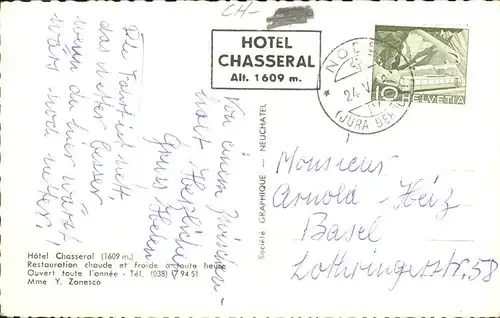 CH-
HOTEL
CHASSERAL
Alt. 1609 m.
NO
24.V
(JURA BER
10 HELVETIA
Die Fahrt ist nett
das Wetter besser
wenn du hier wärst
wärs noch netter!
Von einem Zwischen-
halt Herzlichen
Gruss Helen
Société GRAPHIQUE - NEUCHATEL
Monsieur
Arnold-Heiz
Basel
Lothringerstr. 58
Hôtel Chasseral (1609 m.)
Restauration chaude et froide à toute heure
Ouvert toute l'année - Tél. (038) 7 94 51
Mme Y. Zanesco